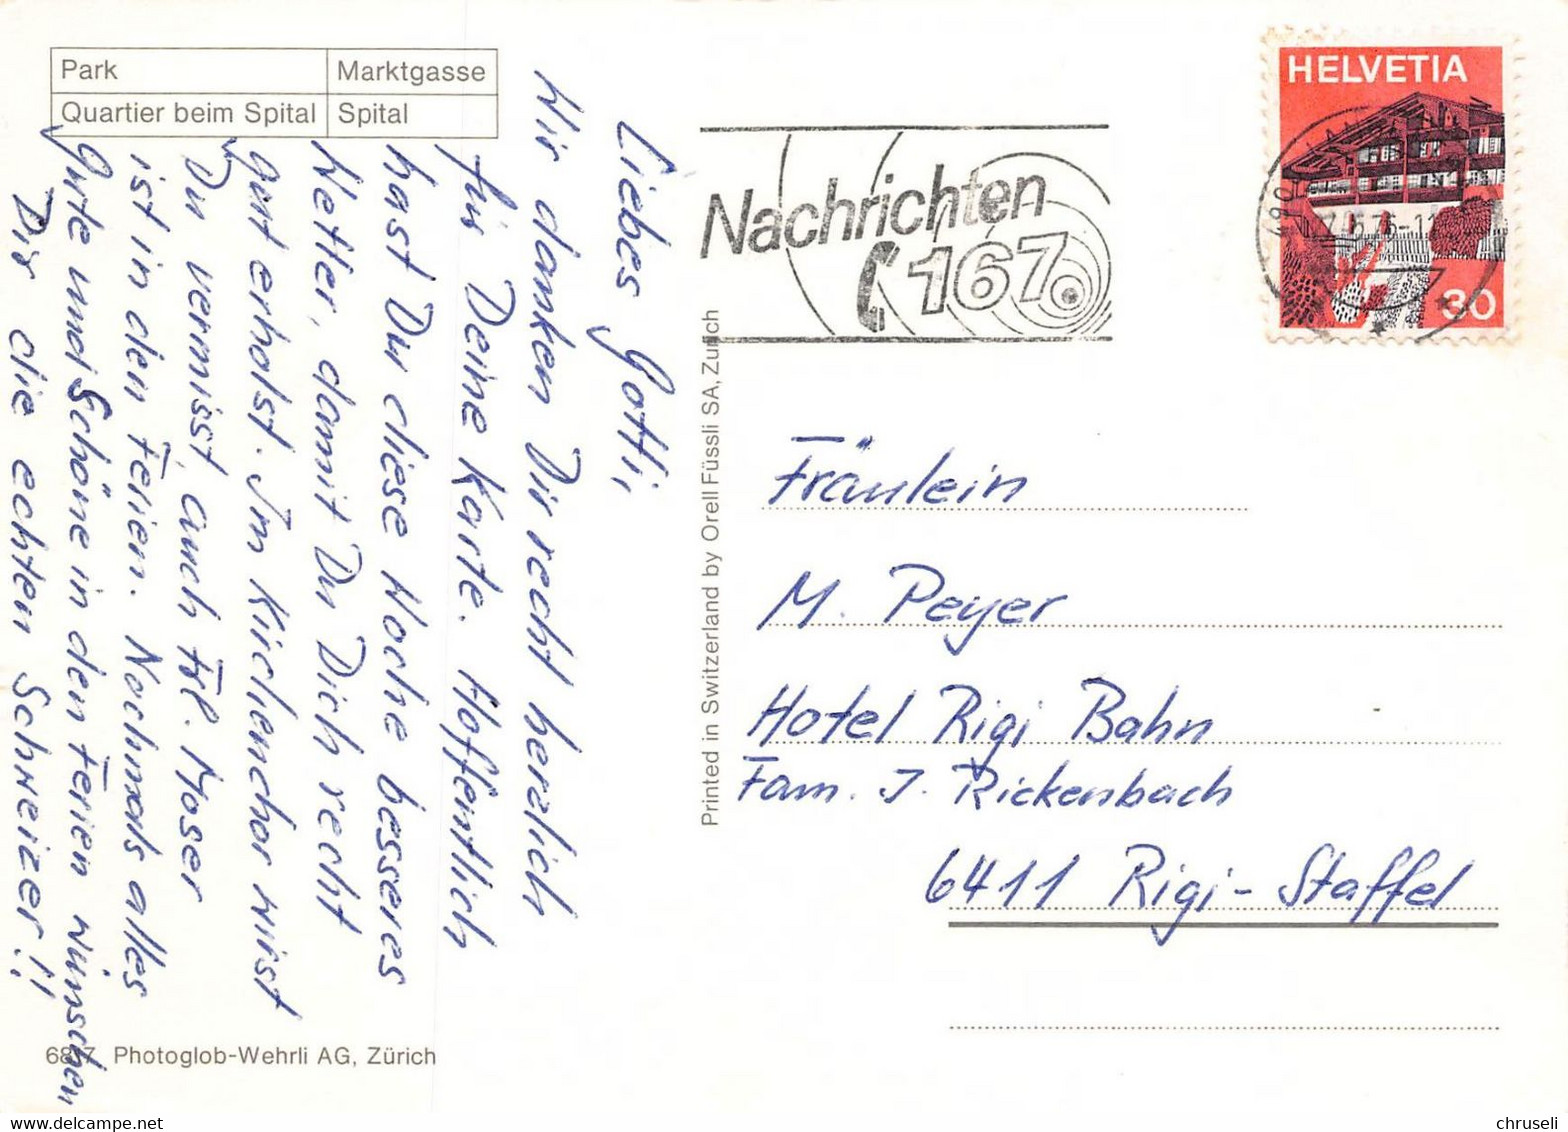 Park
Marktgasse
Quartier beim Spital
Spital
Liebes Gotti,
Wir danken Dir recht herzlich
für Deine Karte. Hoffentlich
hast Du diese Woche besseres
Wetter, damit Du Dich recht
gut erholst. Im Kirchenchor wirst
Du vermisst, auch Frl. Moser
ist in den Ferien. Nochmals alles
Gute und Schöne in den Ferien wünschen
Dir die echten Schweizer!!
Photoglob-Wehrli AG, Zürich
Printed in Switzerland by Orell Füssli SA, Zürich
Nachrichten
167
HELVETIA
30
Fräulein
M. Peyer
Hotel Rigi Bahn
Fam. J. Rickenbach
6411 Rigi-Staffel
chruseli